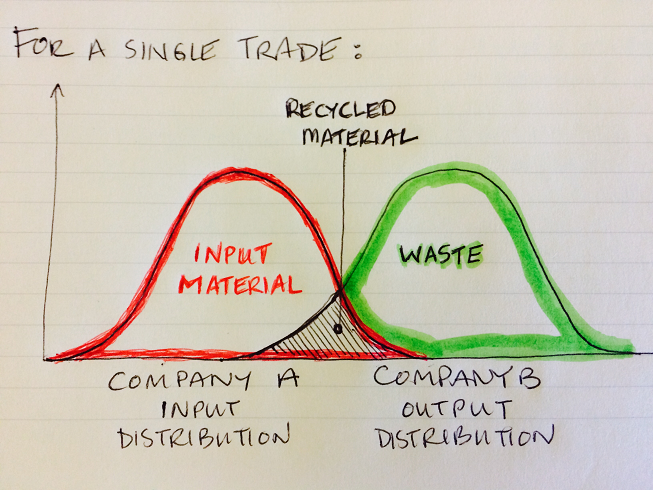 FOR A SINGLE TRADE:
RECYCLED
MATERIAL
INPUT
MATERIAL
WASTE
COMPANY A
INPUT
DISTRIBUTION
COMPANY B
OUTPUT
DISTRIBUTION